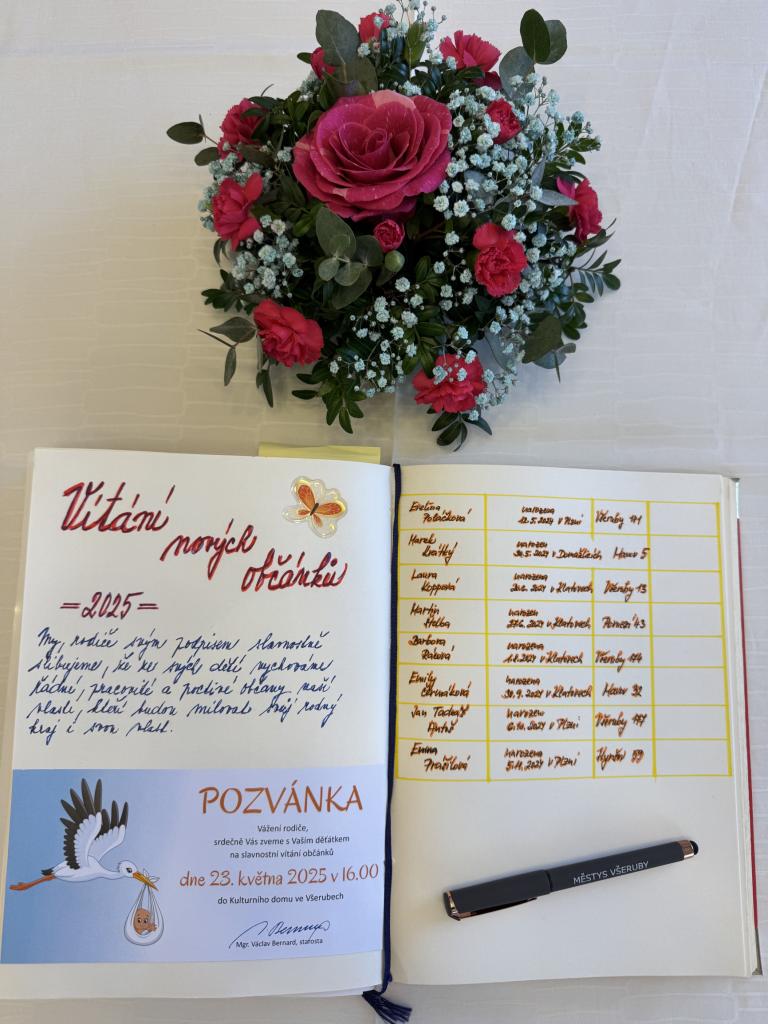 Vítání
nových
občánků
=2025=
My, rodiče svým podpisem slavnostně
slibujeme, že ze svých dětí vychováme
řádné, pracovité a poctivé občany naší
vlasti, kteří budou milovat svůj rodný
kraj i svou vlast.
POZVÁNKA
Vážení rodiče,
srdečně Vás zveme s Vaším děťátkem
na slavnostní vítání občánků
dne 23. května 2025 v 16.00
do Kulturního domu ve Všerubech
Mgr. Václav Bernard, starosta
Evelina narozena
Poláčková 12.5.2024 v Plzni Všeruby 171
Marek narozen
Krátký 30.5.2024 v Domažlicích Hájov 5
Laura narozena
Koppová v Klatovech Všeruby 13
Martin narozen
27.6.2024 v Klatovech 43
Barbora narozena
1.8.2024 v Klatovech Všeruby 174
Emily narozena
Čermáková 30.9.2024 v Klatovech 32
Jan Tadeáš narozen
6.10.2024 v Plzni Všeruby
Emma narozena
5.11.2024 v Plzni Hyršov 59
MĚSTYS VŠERUBY